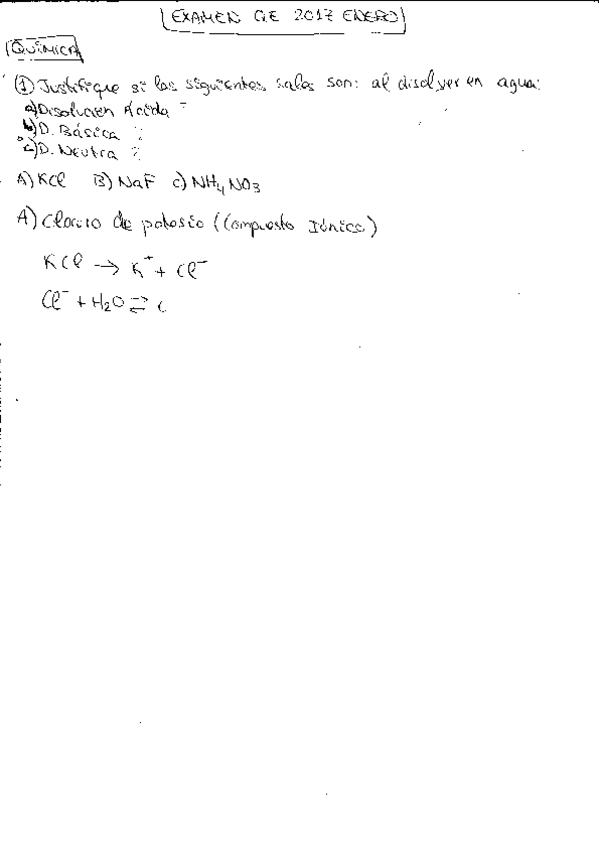 EXAMEN QIE 2017 ENERO
QUÍMICA
① Justifique si las siguientes sales son: al disolver en agua:
a) Disolución Ácida
b) D. Básica
c) D. Neutra
A) KCl B) NaF C) NH4NO3
A) Cloruro de potasio (Compuesto Iónico)
KCl → K⁺ + Cl⁻
Cl⁻ + H2O ⇌